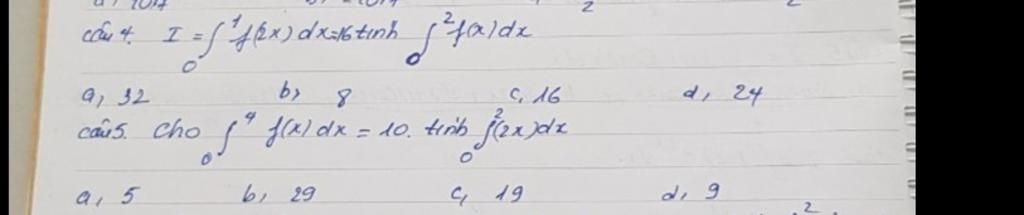 câu 4. I = ∫₀¹ f(2x) dx = 16 tính ∫₀² f(x) dx
a, 32 b, 8 c, 16 d, 24
câu 5. Cho ∫₀⁴ f(x) dx = 10. tính ∫₀² f(2x) dx
a, 5 b, 29 c, 19 d, 9